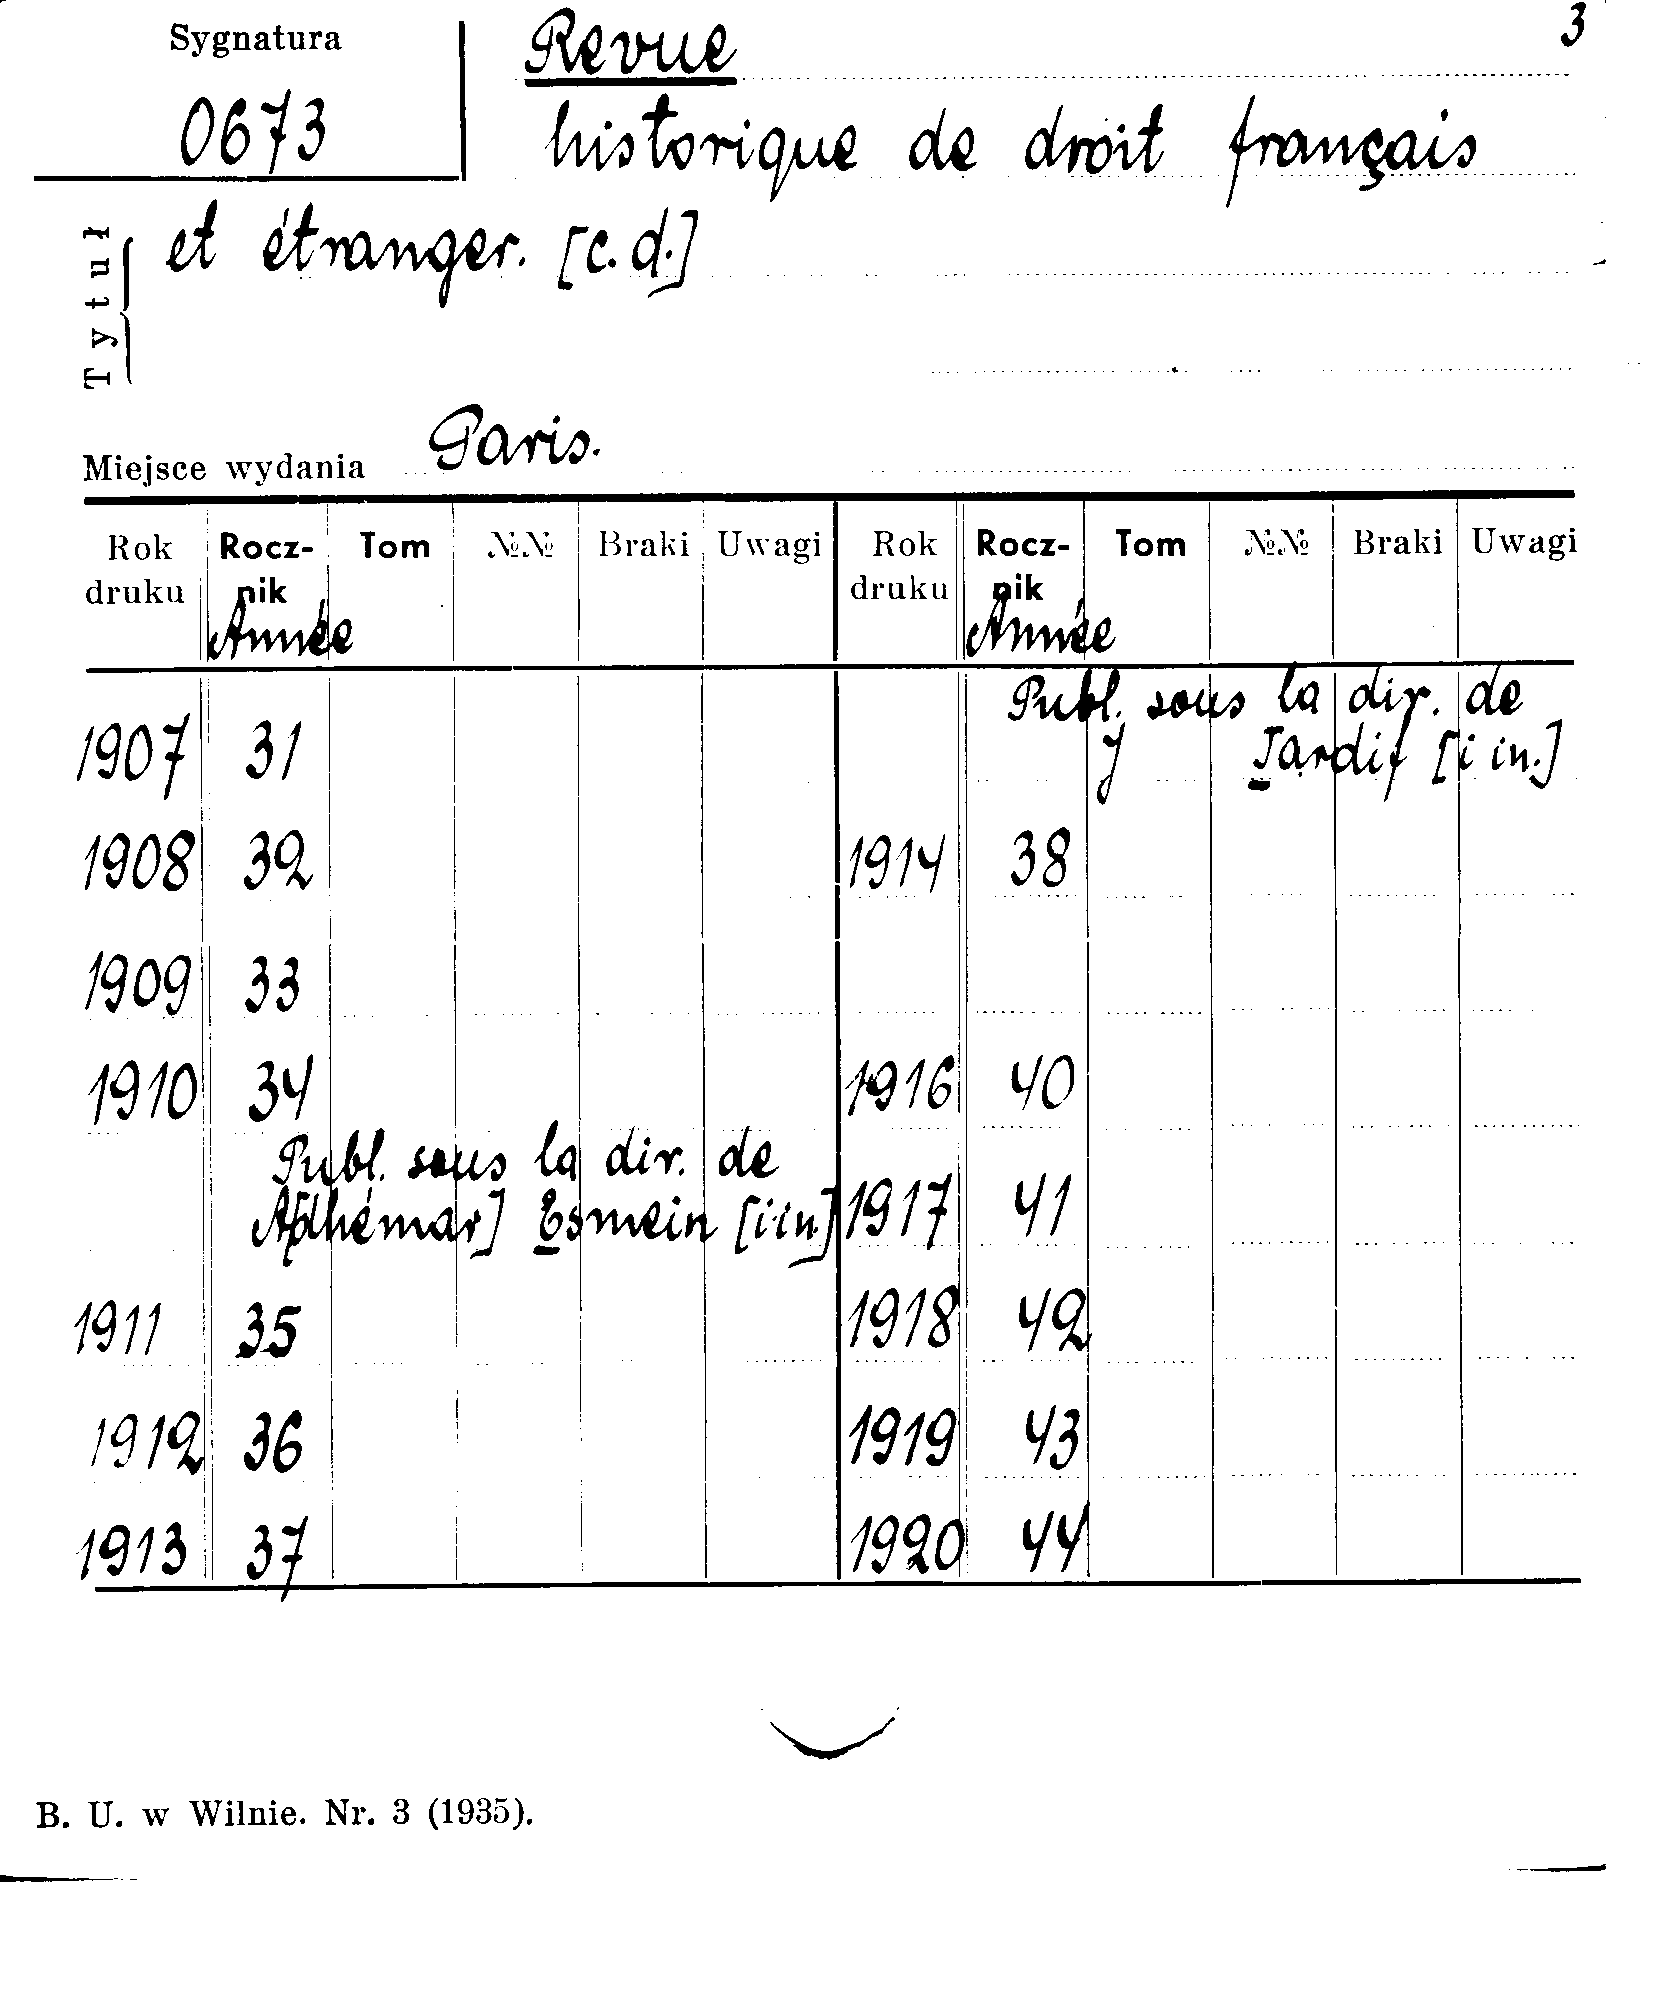 Sygnatura
0673
3
Revue
historique de droit français
et étranger. [c. d.]
Tytuł
Miejsce wydania Paris.
Rok druku Rocz-nik Tom №№ Braki Uwagi Rok druku Rocz-nik Tom №№ Braki Uwagi
Année Année
1907 31
1908 32
1909 33
1910 34
Publ. sous la dir. de
A[dhémar] Esmein [i in.]
1911 35
1912 36
1913 37
Publ. sous la dir. de
J Tardif [i in.]
1914 38
1916 40
1917 41
1918 42
1919 43
1920 44
B. U. w Wilnie. Nr. 3 (1935).